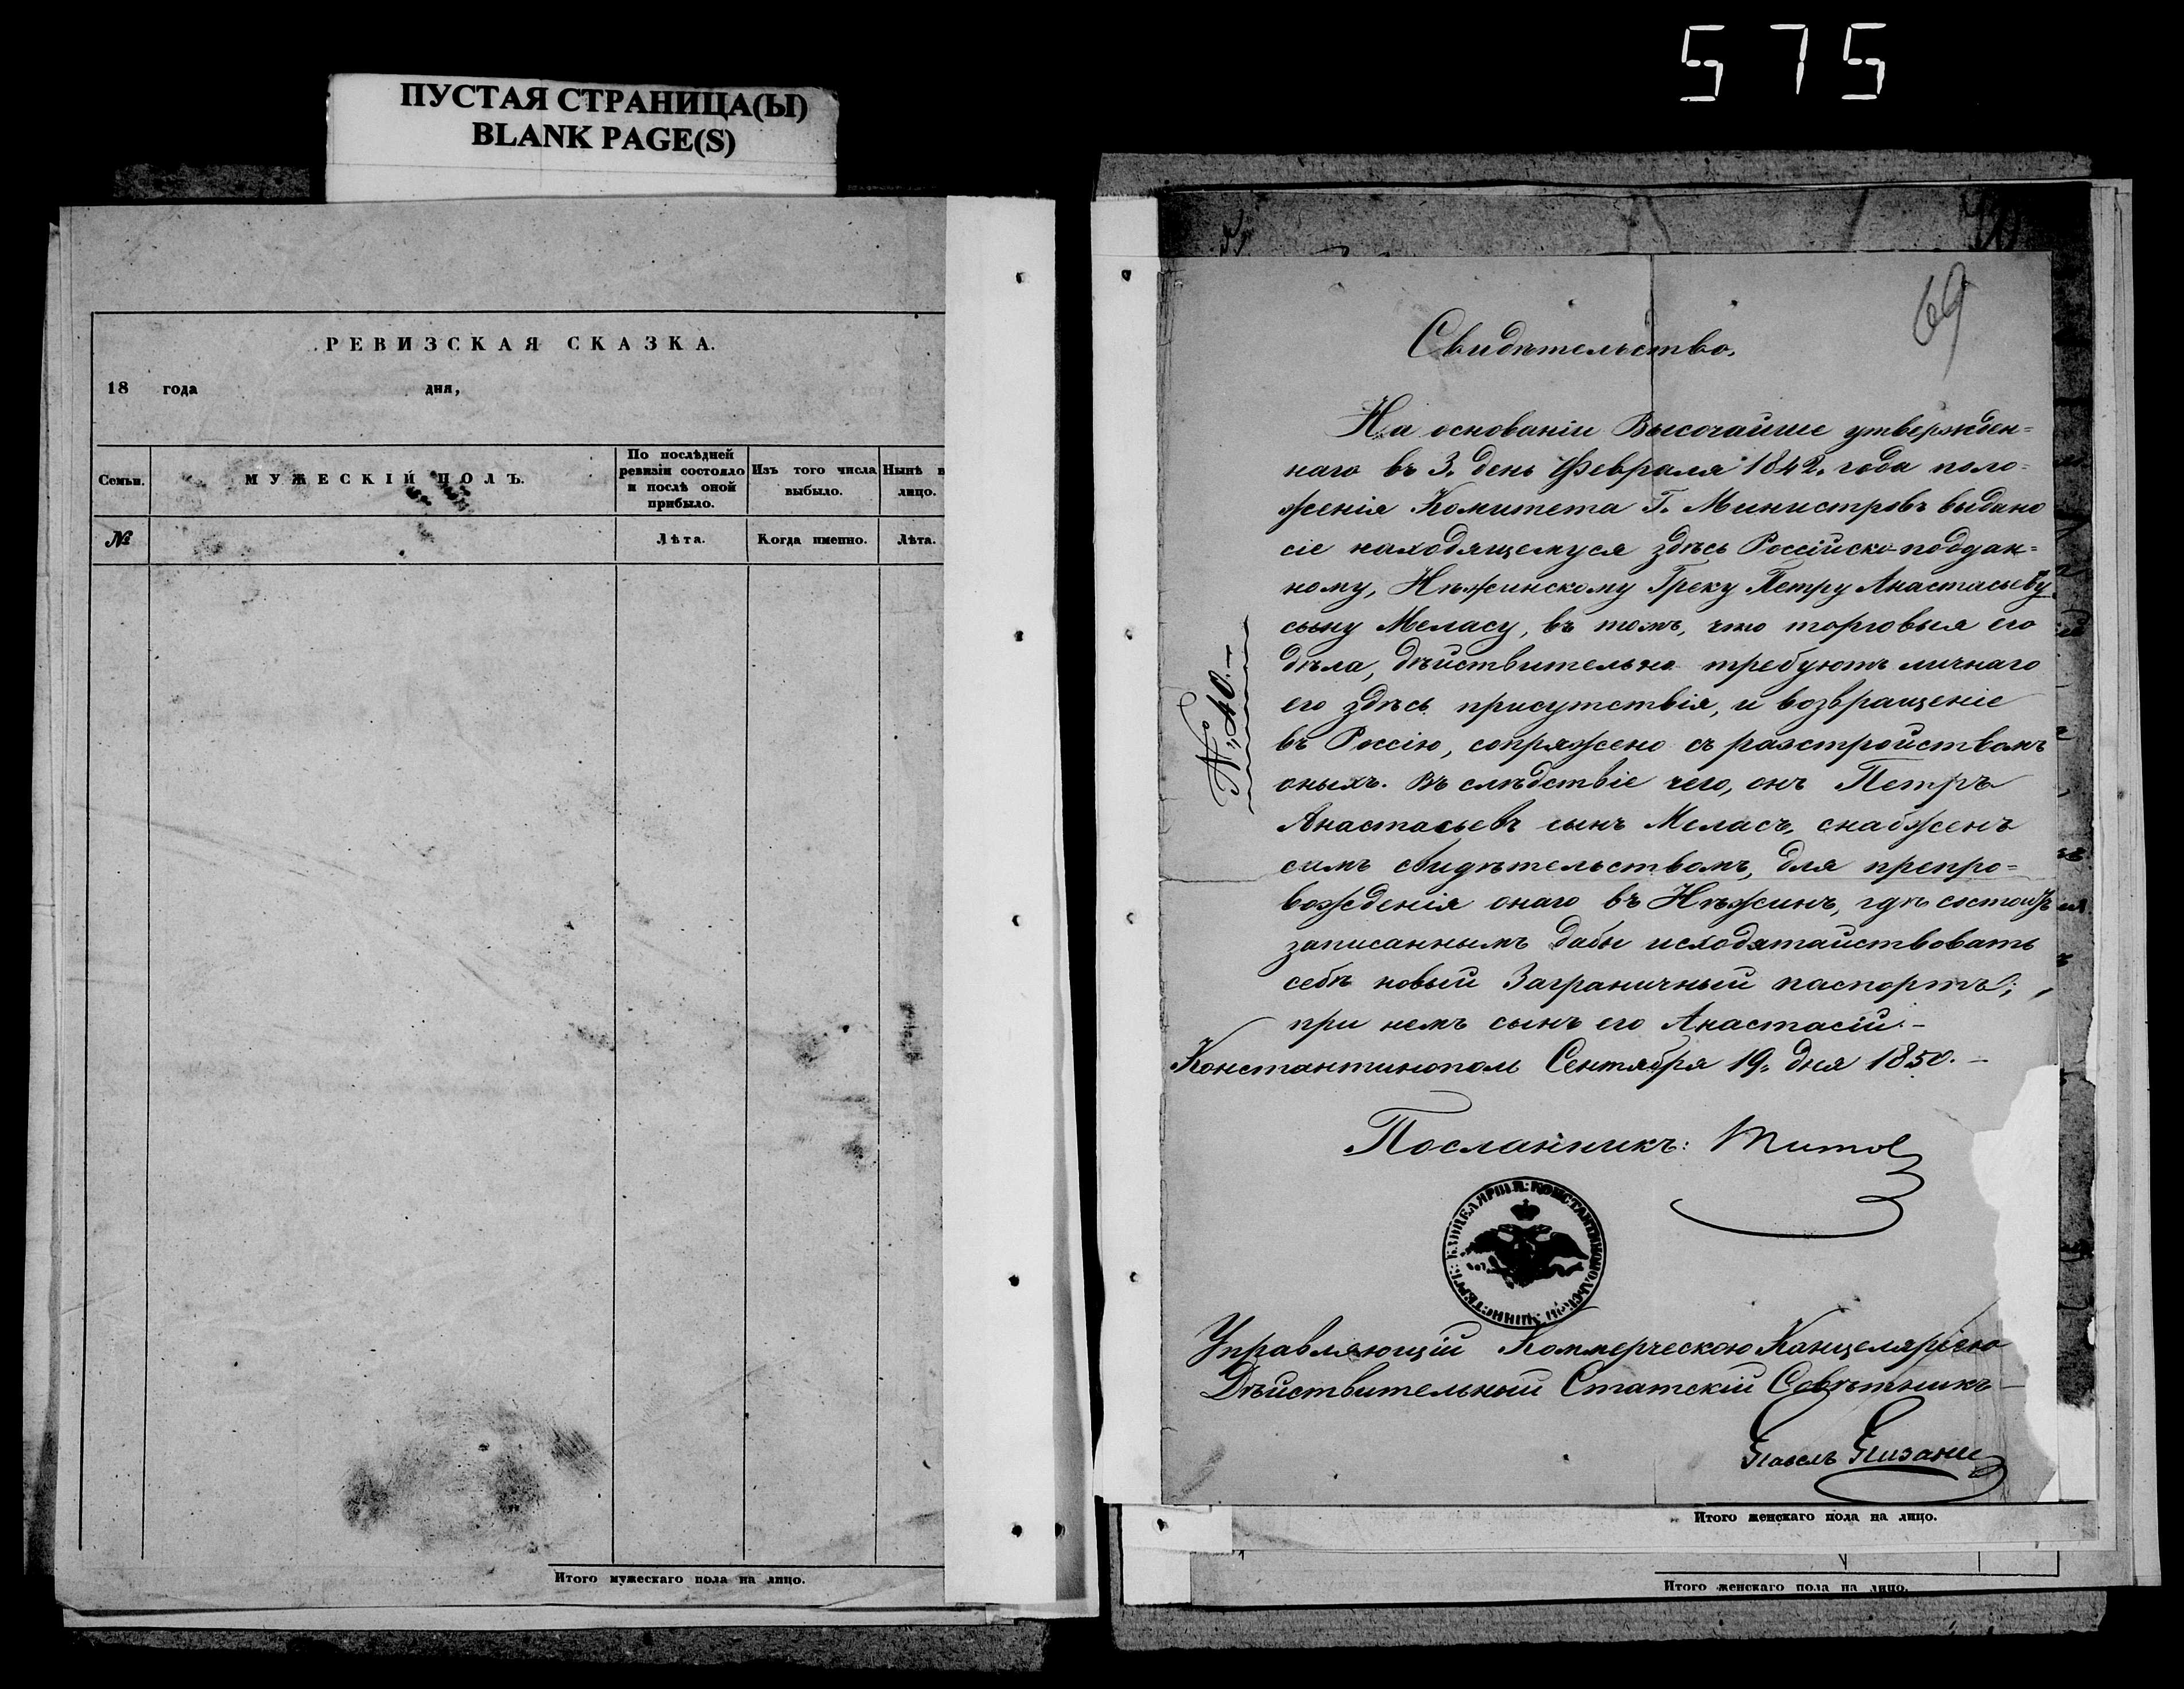 575
ПУСТАЯ СТРАНИЦА(Ы)
BLANK PAGE(S)
РЕВИЗСКАЯ СКАЗКА.
18 года дня,
Семьи.
МУЖЕСКІЙ ПОЛЪ.
По послѣдней
ревизіи состояло
и послѣ оной
прибыло.
Изъ того числа
выбыло.
Нынѣ
лицо.
№
Лѣта.
Когда именно.
Лѣта.
Итого мужескаго пола на лицо.
69
Свидѣтельство.
На основаніи Высочайше утвержден=
наго въ 3. день Февраля 1842. года поло=
женія Комитета Г. Министровъ выдано
сіе находящемуся здѣсь Россійско-поддан=
ному, Нѣжинскому Греку Петру Анастасьеву
сыну Меласу, въ томъ, что торговыя его
дѣла, дѣйствительно требуютъ личнаго
его здѣсь присутствія, и возвращеніе
въ Россію, сопряжено съ разстройствомъ
оныхъ. Въ слѣдствіе чего, онъ Петръ
Анастасьевъ сынъ Меласъ, снабженъ
симъ свидѣтельствомъ, для препро=
вожденія онаго въ Нѣжинъ, гдѣ состоитъ
записаннымъ дабы исходатайствовать
себѣ новый Заграничный паспортъ;
при немъ сынъ его Анастасій.-
Константинополь Сентября 19. дня 1850.-
№ „40.-
Посланникъ: Титов
Управляющій Коммерческою Канцеляріею
Дѣйствительный Статскій Совѣтникъ
Павелъ Пизани
Итого женскаго пола на лицо.
Итого женскаго пола на лицо.